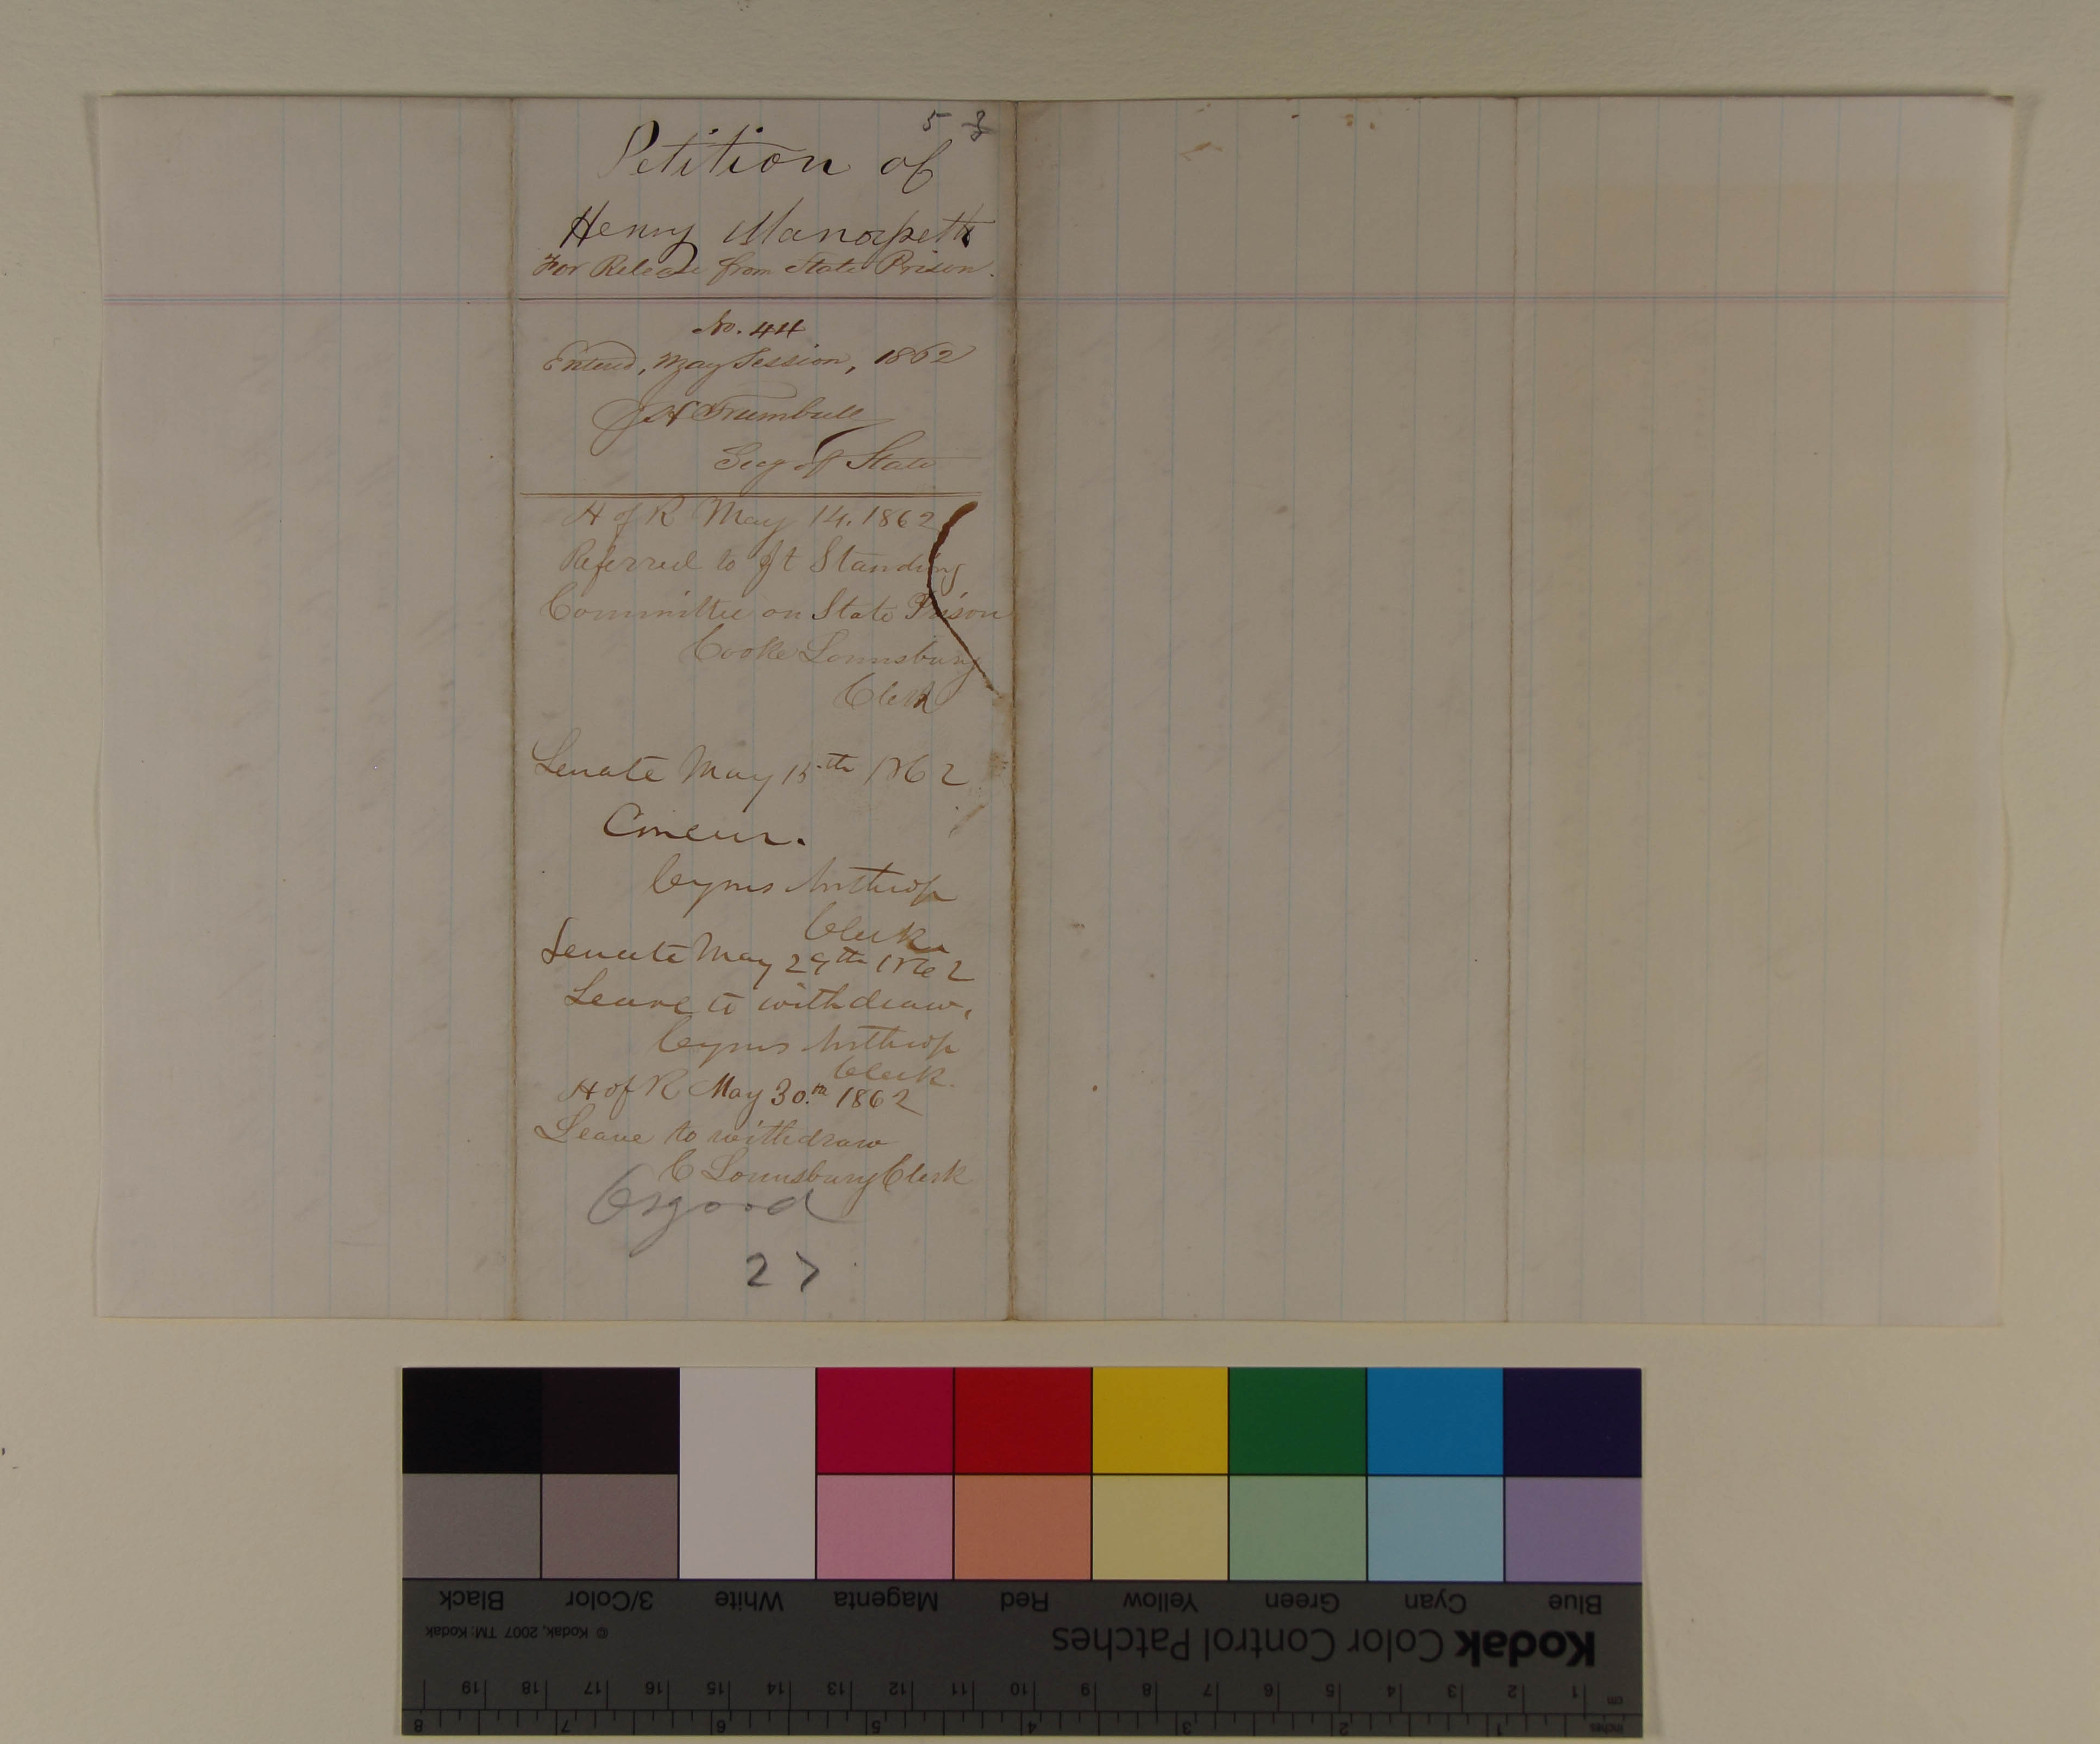 5 3
Petition of
Henry
For Release from State Prison.
No. 44
Enterd, May Session, 1862
J H Trumbull
Secy of State
H of R May 14. 1862
Referred to Jt Standing
Committee on State Prison
Cooke Lounsbury
Clerk
Senate May 15th 1862
Concur.
Cyrus Northrop
Clerk
Senate May 29th 1862
Leave to withdraw.
Cyrus Northrop
Clerk.
H of R May 30.th 1862
Leave to withdraw
C Lounsbury Clerk
Osgood
27
Black 3/Color White Magenta Red Yellow Green Cyan Blue
© Kodak, 2007 TM: Kodak
Kodak Color Control Patches
cm 1 2 3 4 5 6 7 8 9 10 11 12 13 14 15 16 17 18 19
inches 1 2 3 4 5 6 7 8